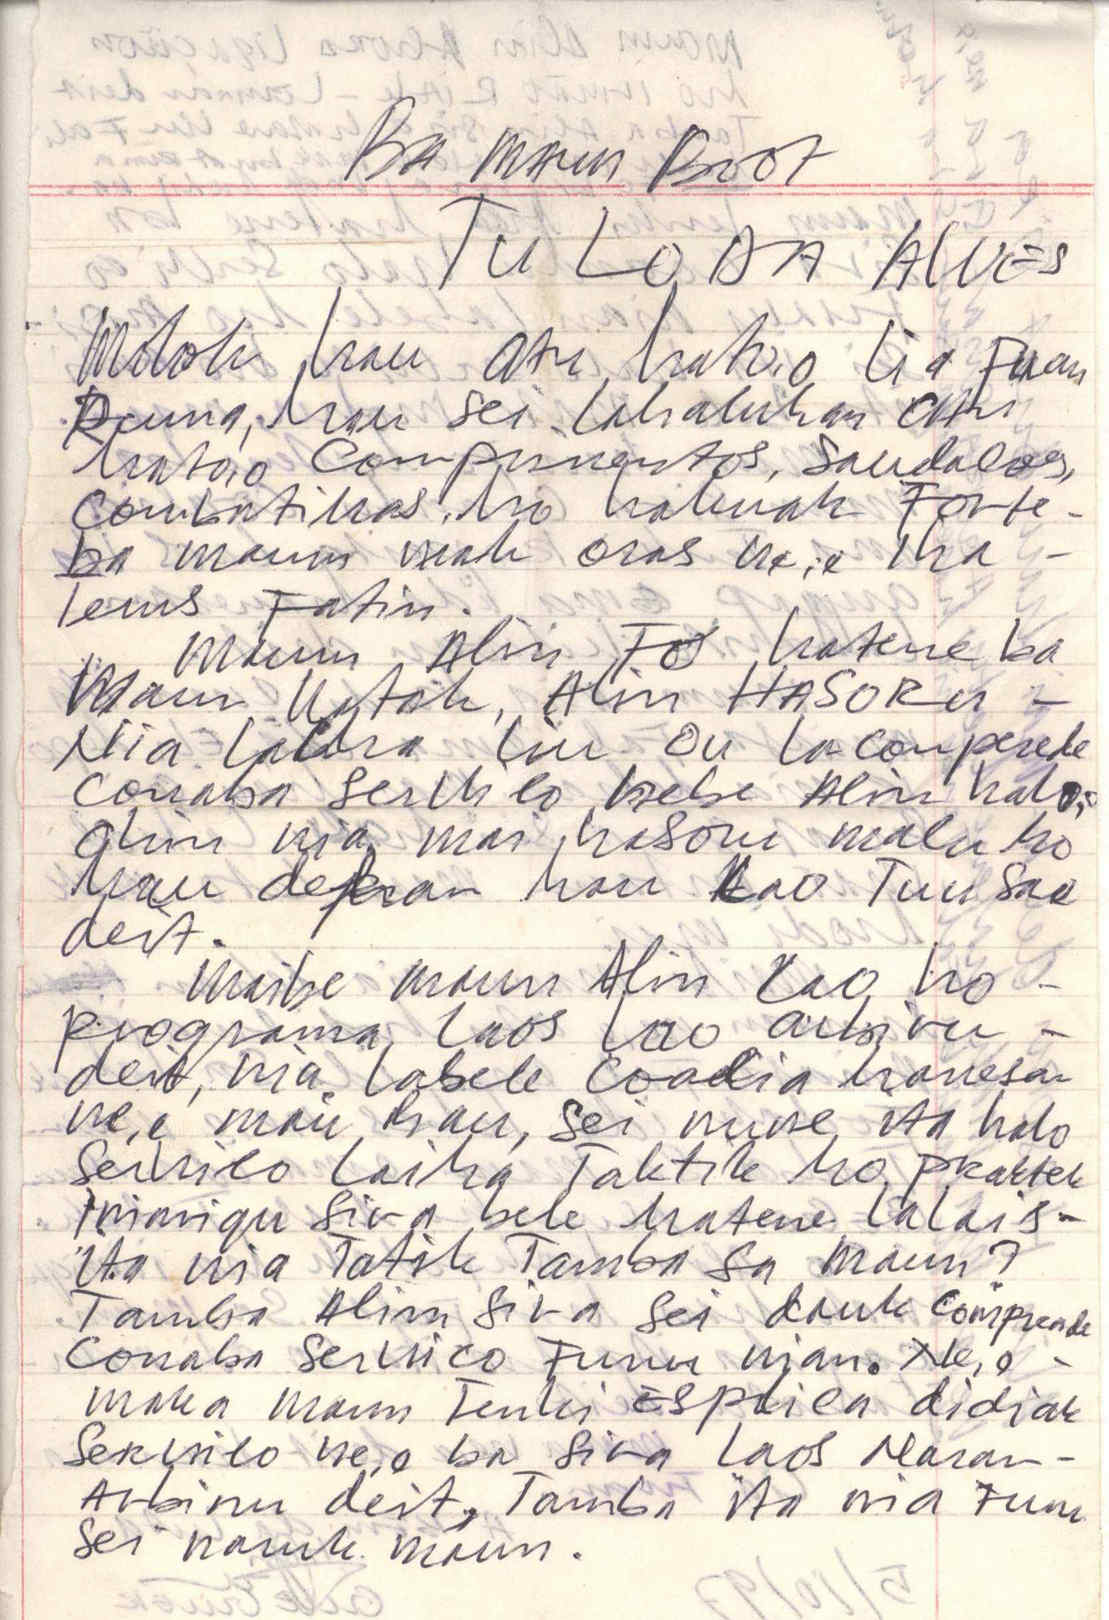 Ba Maun Boot
TULODA ALVES
Molok hau atu hato,o lia Fuan
Ruma, hau sei lahaluhan atu
hato,o Comprimentos, Saudacoes,
Combatikas, ho hakuak Forte -
ba maun mak oras ne,e iha -
lems Fatin.
Maun Alin Fos hatene ba
Maun Katak, Alin HASORU -
Nia laidra liu ou la comprede
Conaba Servico, bebe Alin halo,
alin nia mai hasoru malu ho
hau depan hau Lao Tuu sae
deit.
Maibe maun Alin Lao ho -
programa, laos lao arbiru -
deit, nia labele Coalia hanesan
ne,e mai hau, Sei nune ita halo
Servico laiha Taktik ho, Praktek
inimigu Siva bele hatene lalais -
ita nia Tatik Tamba Sa Maun?
Tamba Alin Siva Sei dauk Comprende
Conaba Servico Funu nian. Ne,e -
maka maun Tenki Esplica didiak
Servico ne,e ba Siva laos Naran -
Arbiru deit, Tamba ita nia Funu
Sei naruk maun.